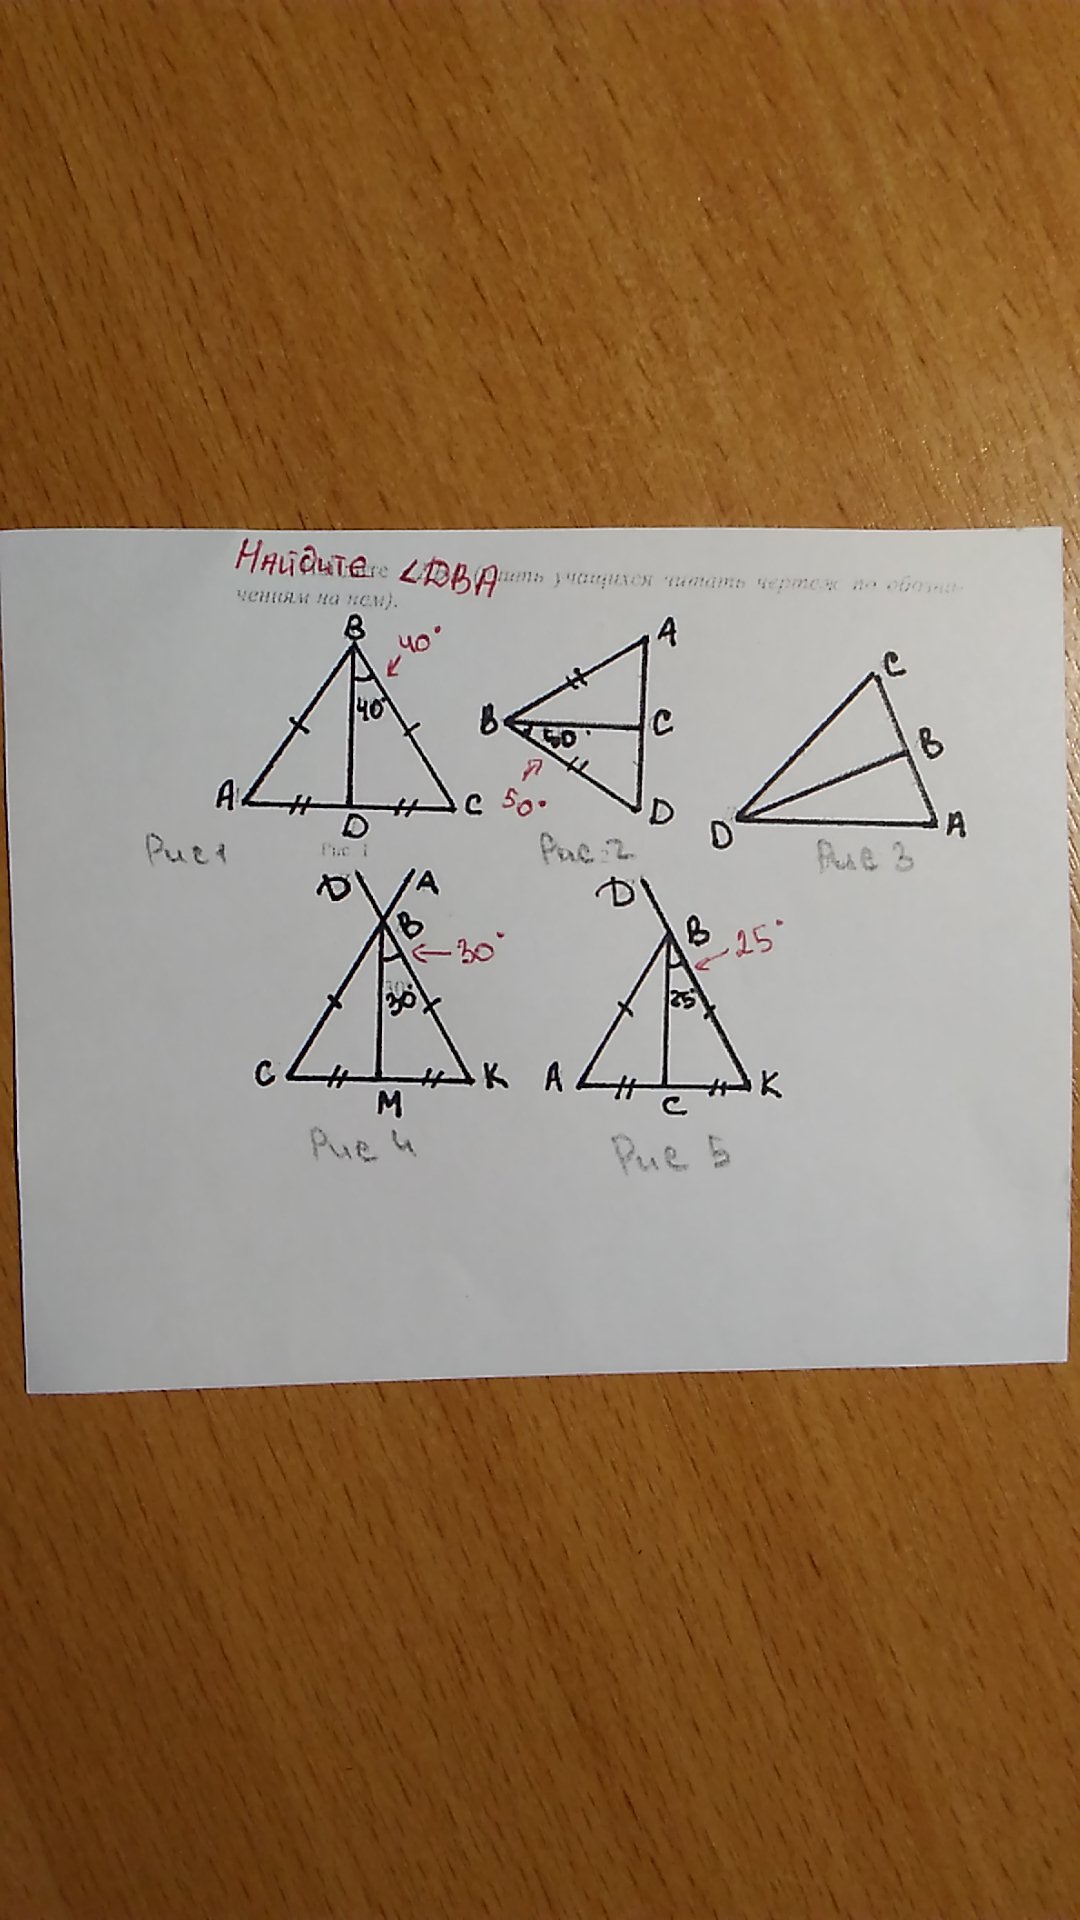 Найдите ∠DBA учить учащихся читать чертеж по обозна-
чениям на нем).
B 40°
40°
A D C
Рис 1 Рис. 1
A
B C
50°
50° D
Рис 2
C
B
D A
Рис 3
D A
B 30°
30°
C M K
Рис 4
D
B 25°
25°
A C K
Рис 5